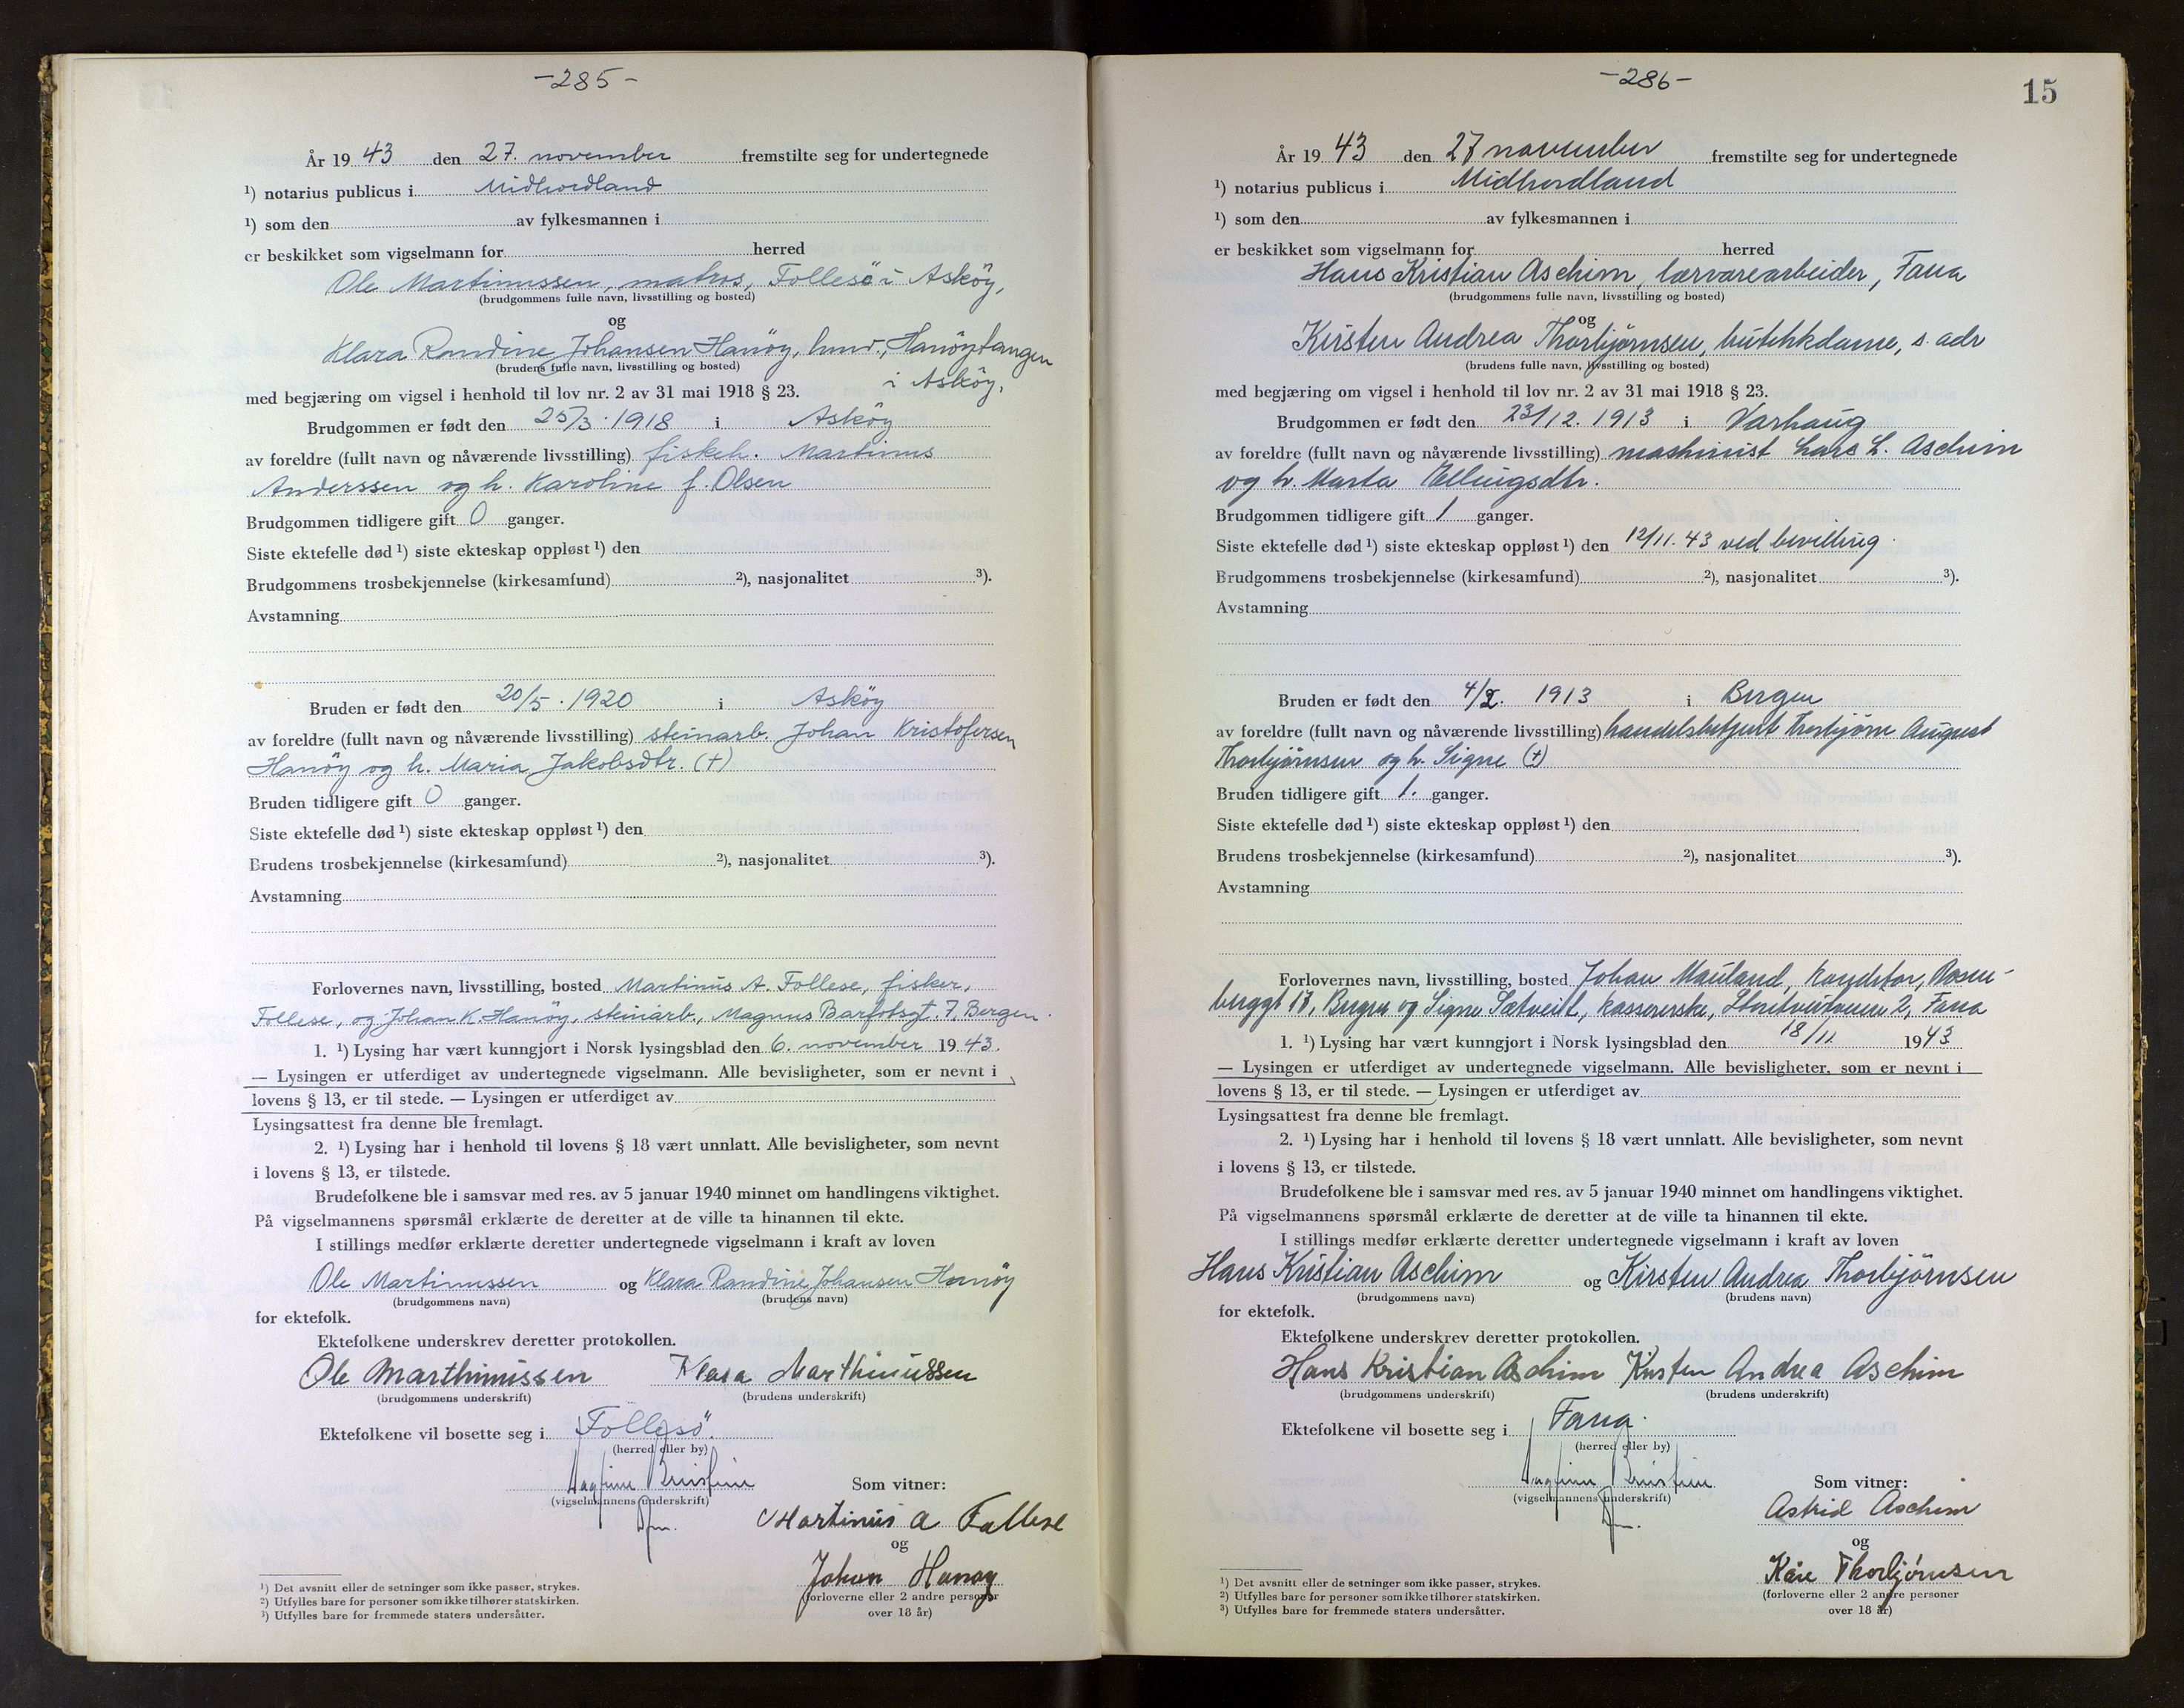 -285-
År 19 43 den 27. november fremstilte seg for undertegnede
¹) notarius publicus i Midhordland
¹) som den av fylkesmannen i
er beskikket som vigselmann for herred
Ole Martinussen, matros, Follesö i Asköy,
(brudgommens fulle navn, livsstilling og bosted)
og
Klara Randine Johansen Hanöy, hmv., Hanöytangen
(brudens fulle navn, livsstilling og bosted)
i Asköy,
med begjæring om vigsel i henhold til lov nr. 2 av 31 mai 1918 § 23.
Brudgommen er født den 25/3. 1918 i Asköy
av foreldre (fullt navn og nåværende livsstilling) fiskeh. Martinus
Anderssen og h. Karoline f. Olsen
Brudgommen tidligere gift 0 ganger.
Siste ektefelle død ¹) siste ekteskap oppløst ¹) den
Brudgommens trosbekjennelse (kirkesamfund) ²), nasjonalitet ³).
Avstamning
Bruden er født den 20/5. 1920 i Asköy
av foreldre (fullt navn og nåværende livsstilling) steinarb. Johan Kristofersen
Hanöy og h. Maria Jakobsdtr. (+)
Bruden tidligere gift 0 ganger.
Siste ektefelle død ¹) siste ekteskap oppløst ¹) den
Brudens trosbekjennelse (kirkesamfund) ²), nasjonalitet ³).
Avstamning
Forlovernes navn, livsstilling, bosted Martinus A. Follese, fisker,
Follese, og Johan K. Hanöy, steinarb., Magnus Barfotsgt. 7, Bergen.
1. ¹) Lysing har vært kunngjort i Norsk lysingsblad den 6. november 19 43.
— Lysingen er utferdiget av undertegnede vigselmann. Alle bevisligheter, som er nevnt i
lovens § 13, er til stede. — Lysingen er utferdiget av
Lysingsattest fra denne ble fremlagt.
2. ¹) Lysing har i henhold til lovens § 18 vært unnlatt. Alle bevisligheter, som nevnt
i lovens § 13, er tilstede.
Brudefolkene ble i samsvar med res. av 5 januar 1940 minnet om handlingens viktighet.
På vigselmannens spørsmål erklærte de deretter at de ville ta hinannen til ekte.
I stillings medfør erklærte deretter undertegnede vigselmann i kraft av loven
Ole Martinussen og Klara Randine Johansen Hanöy
(brudgommens navn) (brudens navn)
for ektefolk.
Ektefolkene underskrev deretter protokollen.
Ole Marthinussen Klara Marthinussen
(brudgommens underskrift) (brudens underskrift)
Ektefolkene vil bosette seg i Follesö.
(herred eller by)
Som vitner:
(vigselmannens underskrift)
Martinus A Follese
og
Johan Hanøy
(forloverne eller 2 andre personer
over 18 år)
¹) Det avsnitt eller de setninger som ikke passer, strykes.
²) Utfylles bare for personer som ikke tilhører statskirken.
³) Utfylles bare for fremmede staters undersåtter.
-286-
15
År 19 43 den 27 november fremstilte seg for undertegnede
¹) notarius publicus i Midhordland
¹) som den av fylkesmannen i
er beskikket som vigselmann for herred
Hans Kristian Aschim, lærvarearbeider, Fana
(brudgommens fulle navn, livsstilling og bosted)
og
Kirsten Andrea Thorbjørnsen, butikkdame, s. adr
(brudens fulle navn, livsstilling og bosted)
med begjæring om vigsel i henhold til lov nr. 2 av 31 mai 1918 § 23.
Brudgommen er født den 23/12. 1913 i Varhaug
av foreldre (fullt navn og nåværende livsstilling) maskinist Lars L. Aschim
og h. Marta Ellingsdtr.
Brudgommen tidligere gift 1 ganger.
Siste ektefelle død ¹) siste ekteskap oppløst ¹) den 12/11. 43 ved bevilling.
Brudgommens trosbekjennelse (kirkesamfund) ²), nasjonalitet ³).
Avstamning
Bruden er født den 4/2. 1913 i Bergen
av foreldre (fullt navn og nåværende livsstilling) handelsbetjent Thorbjørn August
Thorbjørnsen og h. Signe (+)
Bruden tidligere gift 1. ganger.
Siste ektefelle død ¹) siste ekteskap oppløst ¹) den
Brudens trosbekjennelse (kirkesamfund) ²), nasjonalitet ³).
Avstamning
Forlovernes navn, livsstilling, bosted Johan Mauland, konditor, Rosen-
berggt 17, Bergen og Signe Sætveitt, kassererske, 2, Fana
1. ¹) Lysing har vært kunngjort i Norsk lysingsblad den 18/11. 1943
— Lysingen er utferdiget av undertegnede vigselmann. Alle bevisligheter, som er nevnt i
lovens § 13, er til stede. — Lysingen er utferdiget av
Lysingsattest fra denne ble fremlagt.
2. ¹) Lysing har i henhold til lovens § 18 vært unnlatt. Alle bevisligheter, som nevnt
i lovens § 13, er tilstede.
Brudefolkene ble i samsvar med res. av 5 januar 1940 minnet om handlingens viktighet.
På vigselmannens spørsmål erklærte de deretter at de ville ta hinannen til ekte.
I stillings medfør erklærte deretter undertegnede vigselmann i kraft av loven
Hans Kristian Aschim og Kirsten Andrea Thorbjörnsen
(brudgommens navn) (brudens navn)
for ektefolk.
Ektefolkene underskrev deretter protokollen.
Hans Kristian Aschim Kirsten Andrea Aschim
(brudgommens underskrift) (brudens underskrift)
Ektefolkene vil bosette seg i Fana.
(herred eller by)
Som vitner:
(vigselmannens underskrift)
Astrid Aschim
og
Kåre Thorbjørnsen
(forloverne eller 2 andre personer
over 18 år)
¹) Det avsnitt eller de setninger som ikke passer, strykes.
²) Utfylles bare for personer som ikke tilhører statskirken.
³) Utfylles bare for fremmede staters undersåtter.